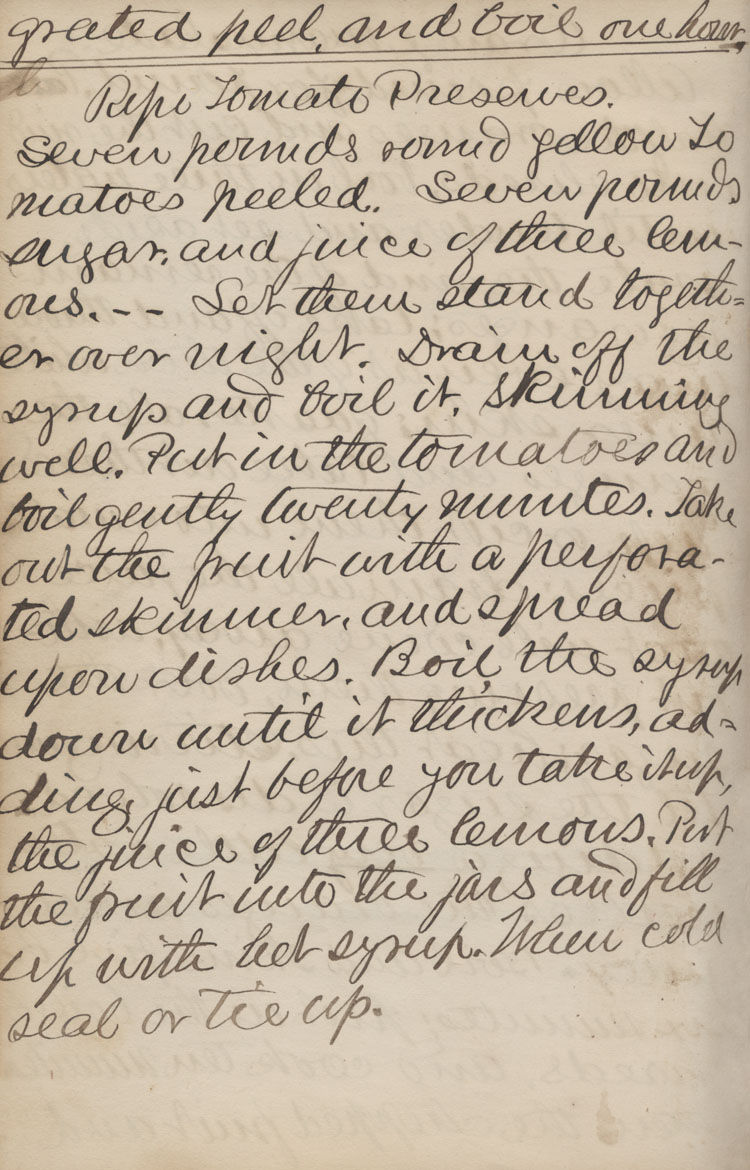 grated peel, and boil one hour,
Ripe Tomato Preserves.
Seven pounds round yellow To
matoes peeled. Seven pounds
sugar, and juice of three lem-
ons. -- Let them stand togeth=
er over night. Drain off the
syrup and boil it, skimming
well. Put in the tomatoes and
boil gently twenty minutes. Take
out the fruit with a perfora-
ted skimmer, and spread
upon dishes. Boil the syrup
down until it thickens, ad=
ding, just before you take it up,
the juice of three lemons. Put
the fruit into the jars and fill
up with hot syrup. When cold
seal or tie up.